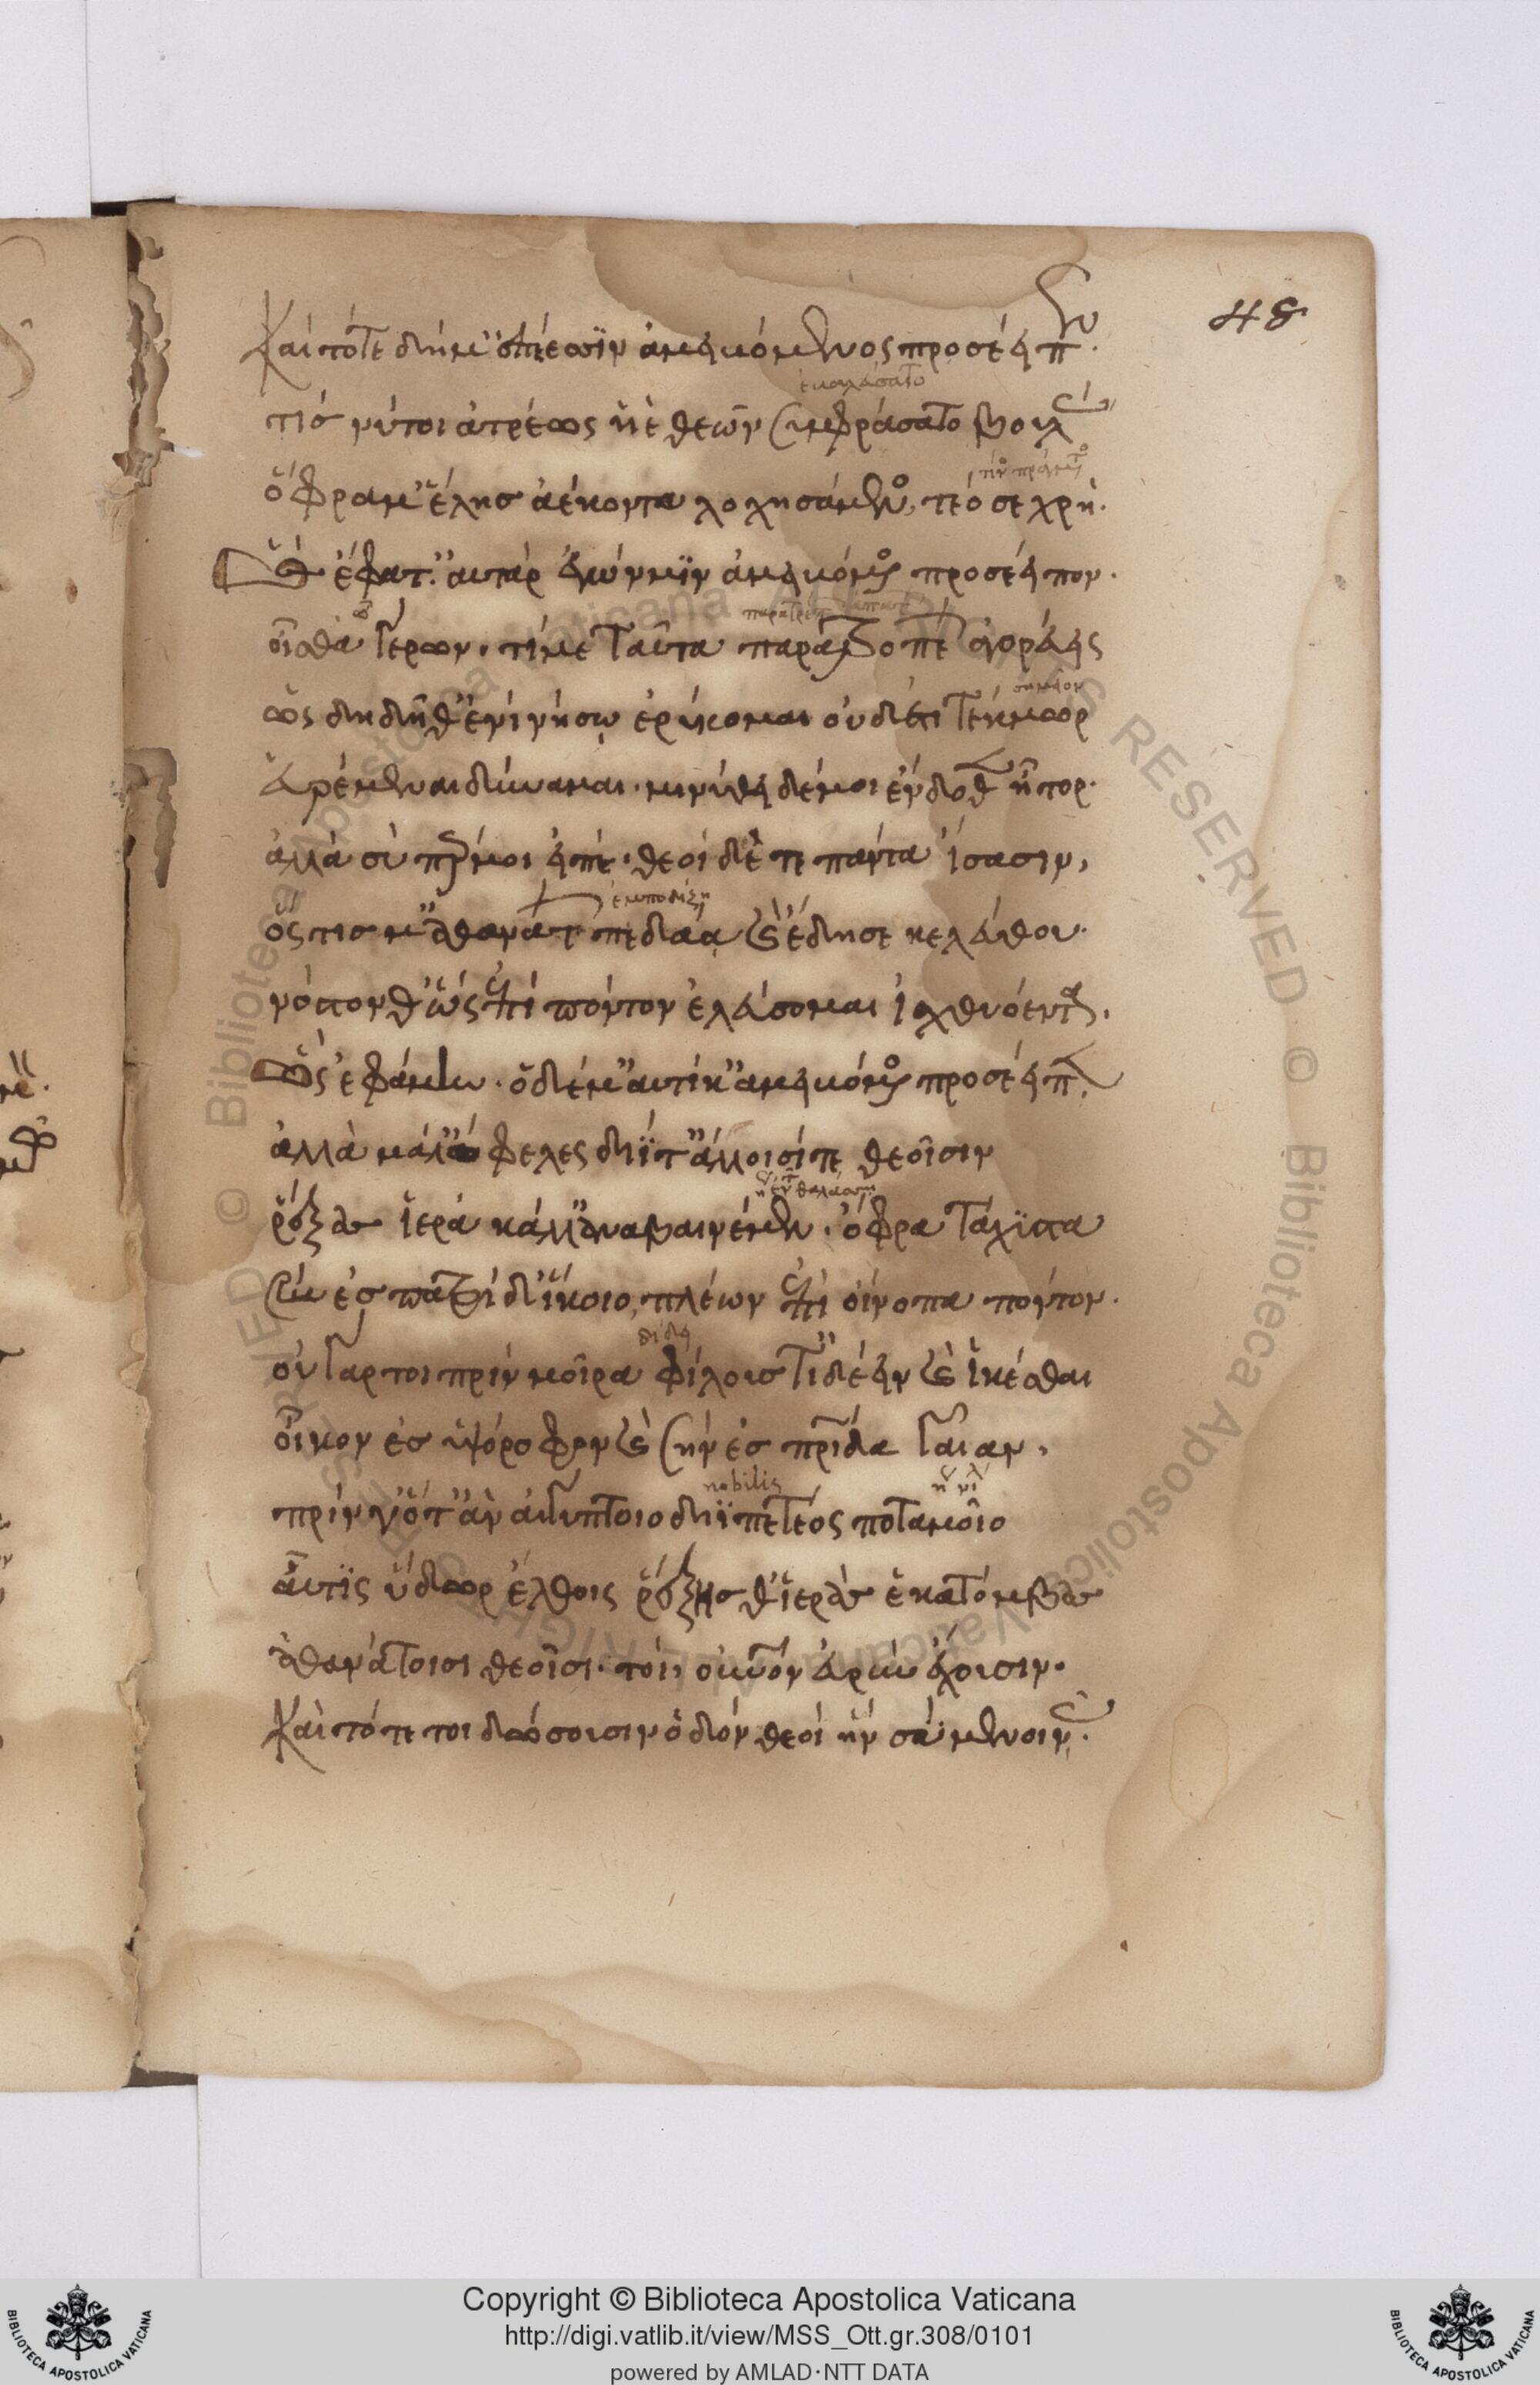 48
Καὶ τότε δή μ' ἐπέεσσιν ἀμειβόμενος προσέειπεν.
ἐκαλέσατο
τίς νύ τοι ἀτρέως ὑὲ θεῶν συμφράσατο βουλάς
τίνος πράγματος
ὄφρα μ' ἕλῃς ἀέκοντα λοχησάμενος, τέο σε χρή.
Ὣς ἔφατ'. αὐτὰρ ἐγώ μιν ἀμειβόμενος προσέειπον.
οἶσθα γέρων. τί με ταῦτα παρατροπέων ἀγορεύεις
σημεῖον
ὡς δὴ δήθ' ἐνὶ νήσῳ ἐρύκομαι οὐδέ τι τέκμωρ
εὑρέμεναι δύναμαι. μινύθει δέ μοι ἔνδοθεν ἦτορ.
ἀλλὰ σύ πέρ μοι εἰπέ. θεοὶ δέ τε πάντα ἴσασιν,
ἐμποδίζει
ὅς τις μ' ἀθανάτων πεδάᾳ καὶ ἔδησε κελεύθου.
νόστον θ' ὡς ἐπὶ πόντον ἐλεύσομαι ἰχθυόεντα.
Ὣς ἐφάμην. ὁ δέ μ' αὐτίκ' ἀμειβόμενος προσέειπεν.
ἀλλὰ μάλ' ὤφελες διΐ τ' ἄλλοισίν τε θεοῖσιν
ῥέξας ἱερὰ κάλλ' ἀναβαινέμεν. ὄφρα τάχιστα
σὴν ἐς πατρίδ' ἵκοιο, πλέων ἐπὶ οἴνοπα πόντον.
οὐ γάρ τοι πρὶν μοῖρα φίλους τ' ἰδέειν καὶ ἱκέσθαι
οἶκον ἐς ὑψόροφον καὶ σὴν ἐς πατρίδα γαῖαν,
nobilis
πρίν γ' ὅτ' ἂν αἰγύπτοιο διϊπετέος ποταμοῖο
αὖτις ὕδωρ ἔλθοις ῥέξῃς θ' ἱερὰς ἑκατόμβας
ἀθανάτοισι θεοῖσι. τοὶ οὐρανὸν εὐρὺν ἔχουσιν.
Καὶ τότε τοι δώσουσιν ὁδὸν θεοὶ ἣν σὺ μενοινᾷς.
Copyright © Biblioteca Apostolica Vaticana
http://digi.vatlib.it/view/MSS_Ott.gr.308/0101
powered by AMLAD·NTT DATA